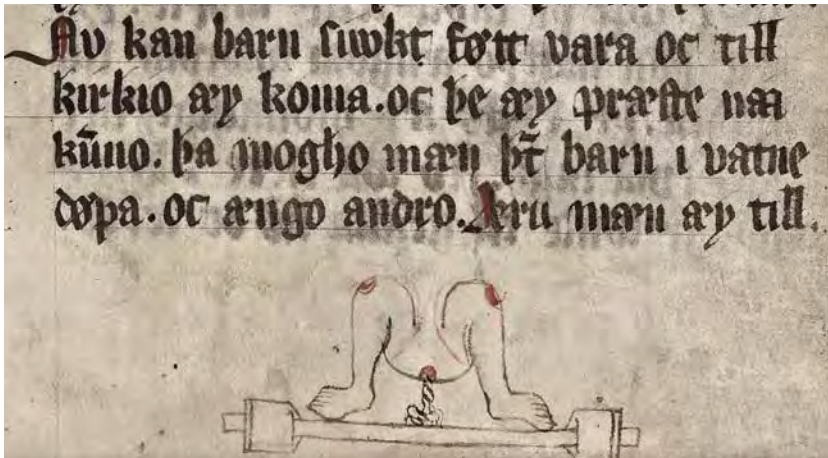 Nv kan barn siwkt føtt vara oc till
kirkio æy koma. oc þe æy præste naa
kūno. þa mogho mæn þ̄t barn i vatne
døpa. oc ængo andro. Æru mæn æy till.